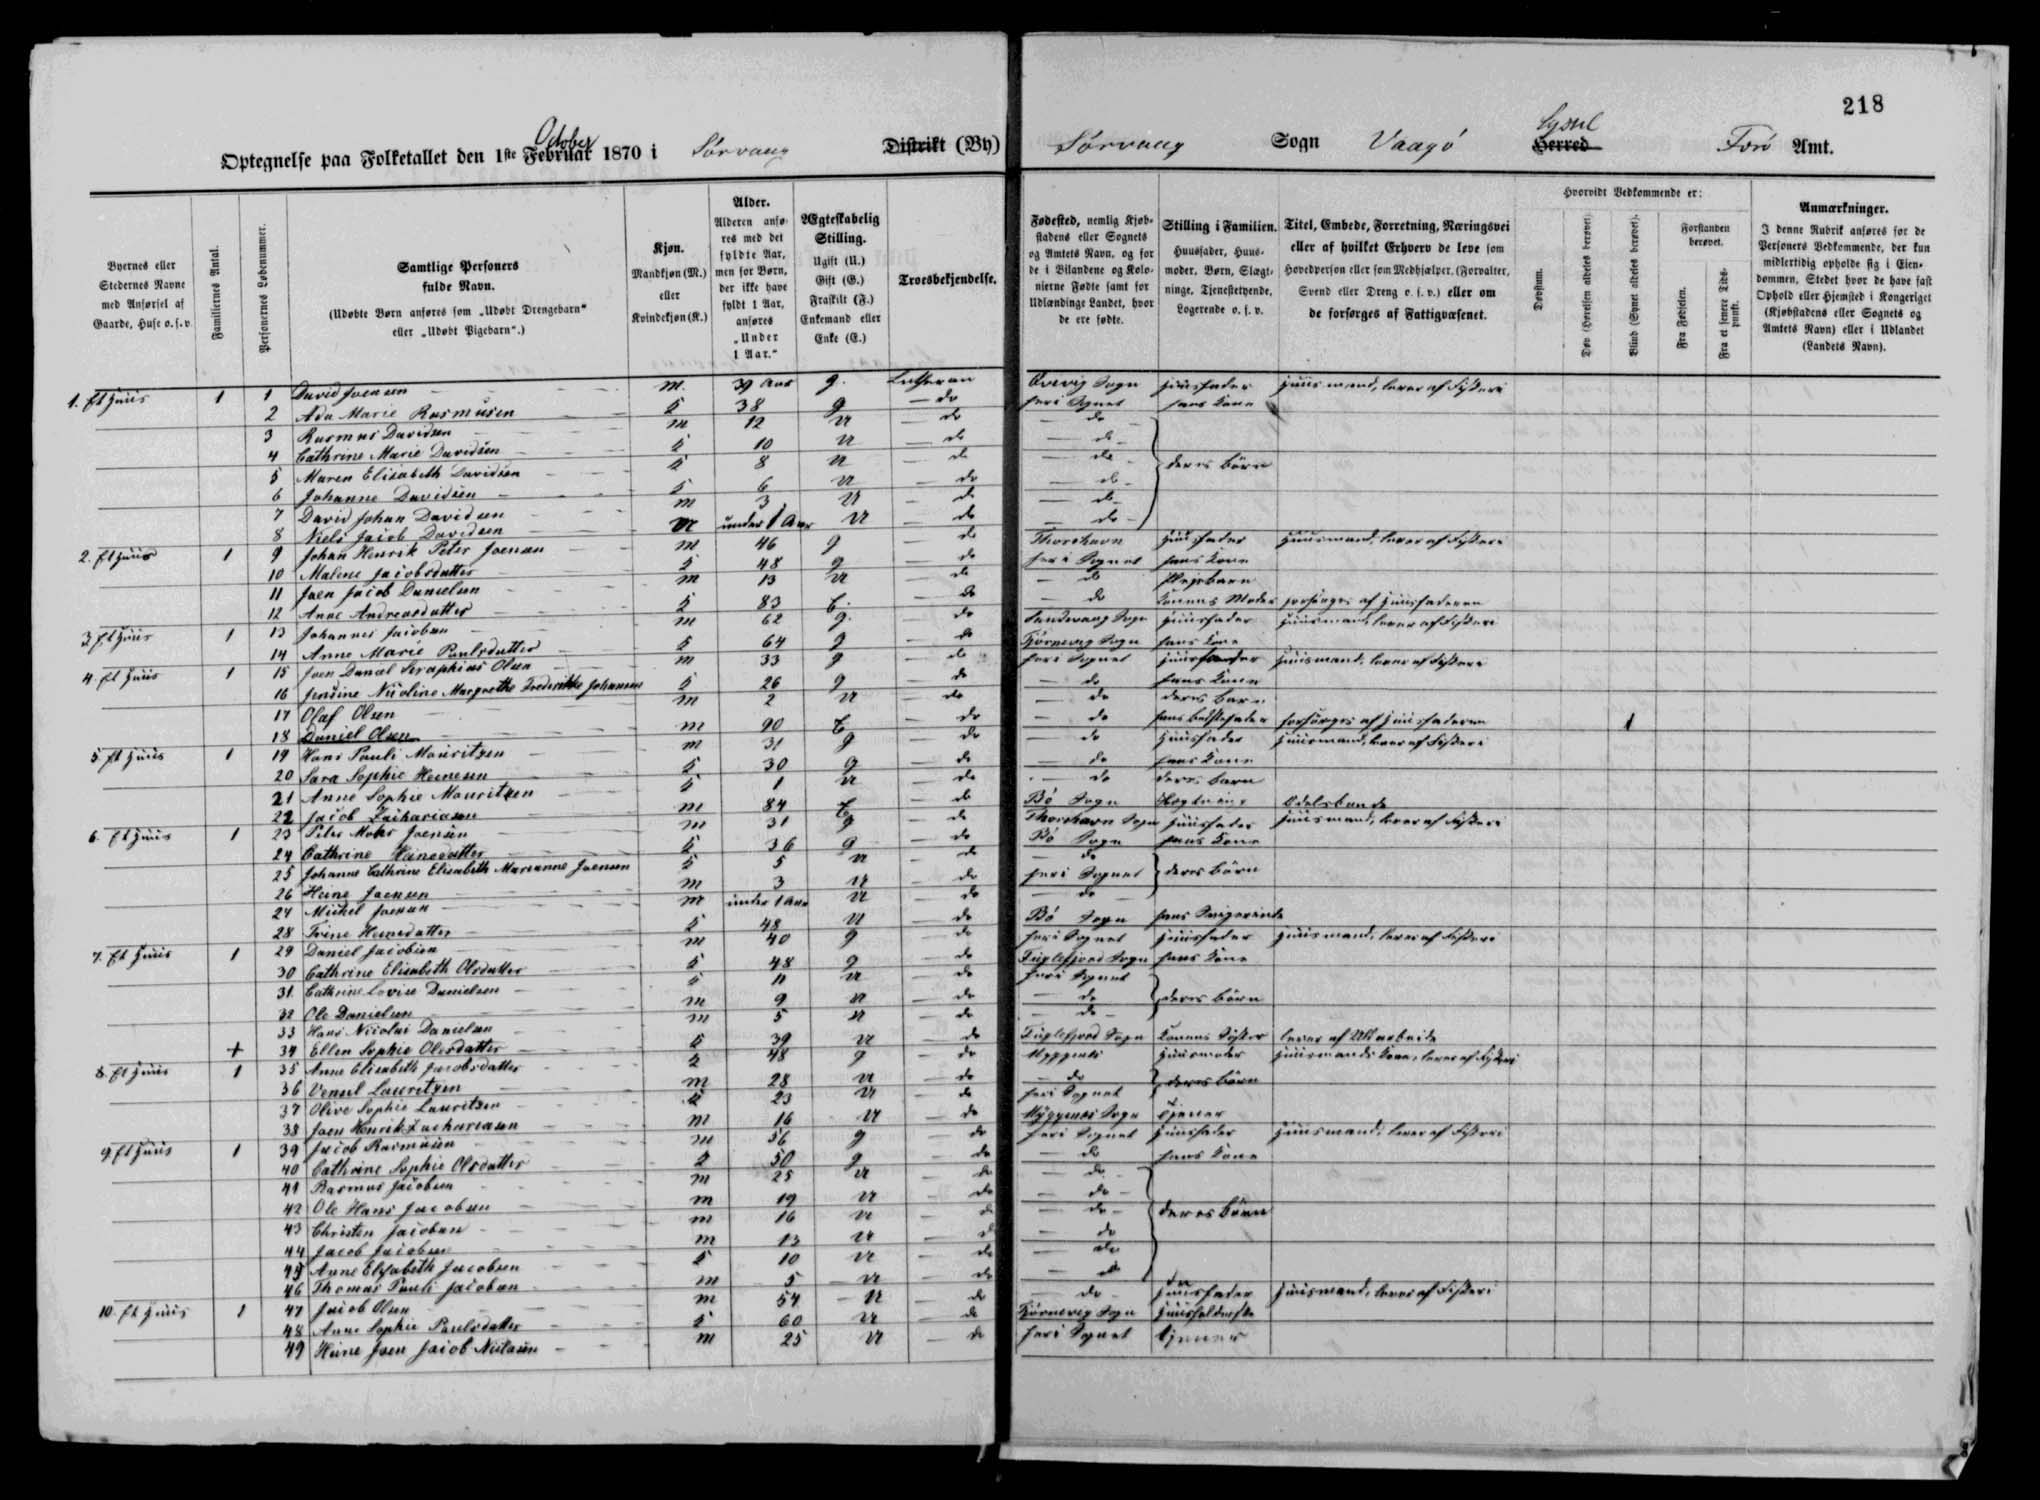 218
Optegnelse paa Folketallet den 1ste Februar October 1870 i Sørvaag Distrikt (By) Sørvaag Sogn Vaagø Herred Sysel Forø Amt.
Byernes eller Stedernes Navne med Anførsel af Gaarde, Huse o.s.v.
Familiernes Antal.
Personernes Løbenummer.
Samtlige Personers fulde Navn.
(Udøbte Børn anføres som „Udøbt Drengebarn“ eller „Udøbt Pigebarn“.)
Kjøn. Mandkjøn (M.) eller Kvindekjøn (K.)
Alder. Alderen anføres med det fyldte Aar, men for Børn, der ikke have fyldt 1 Aar, anføres „Under 1 Aar.“
Ægteskabelig Stilling. Ugift (U.) Gift (G.) Fraskilt (F.) Enkemand eller Enke (E.)
Troesbekjendelse.
Fødested, nemlig Kjøbstadens eller Sognets og Amtets Navn, og for de i Bilandene og Kolonierne Fødte samt for Udlændinge Landet, hvor de ere fødte.
Stilling i Familien. Huusfader, Huusmoder, Børn, Slægtninge, Tjenestetyende, Logerende o.s.v.
Titel, Embede, Forretning, Næringsvei eller af hvilket Erhverv de leve som Hovedperson eller som Medhjælper, (Forvalter, Svend eller Dreng o.s.v.) eller om de forsørges af Fattigvæsenet.
Hvorvidt Vedkommende er:
Døvstum.
Døv (Hørelsen aldeles berøvet).
Blind (Synet aldeles berøvet).
Forstanden berøvet.
Fra Fødselen.
Fra et senere Tidspunkt.
Anmærkninger. I denne Rubrik anføres for de Personers Vedkommende, der kun midlertidig opholde sig i Eiendommen, Stedet hvor de have fast Ophold eller Hjemsted i Kongeriget (Kjøbstadens eller Sognets og Amtets Navn) eller i Udlandet (Landets Navn).
1. Et Huus 1 1 David Joensen m. 39 Aar g. Lutheran Qvivig Sogn Huusfader Huusmand, lever af Fiskeri
2 Ada Marie Rasmusen k 38 g do her i Sognet hans Kone
3 Rasmus Davidsen m 12 U do do
4 Cathrine Marie Davidsen k 10 U do do
5 Maren Elisabeth Davidsen k 8 U do do deres Børn
6 Johanne Davidsen k 6 U do do
7 David Johan Davidsen m 3 U do do
8 Niels Jacob Davidsen m under 1 Aar U do do
2. Et Huus 1 9 Johan Henrik Peter Joensen m 46 g do Thorshavn Huusfader Huusmand, lever af Fiskeri
10 Malene Jacobsdatter k 48 g do her i Sognet hans Kone
11 Joen Jacob Danielsen m 13 U do do Plejebarn
12 Anne Andreasdatter k 83 E. do do Konens Moder forsørges af Huusfaderen
3. Et Huus 1 13 Johannes Jacobsen m 62 g. do Sandevaag Sogn Huusfader Huusmand, lever af Fiskeri
14 Anne Marie Poulsdatter k 64 g do Tjørnevig Sogn hans Kone
4. Et Huus 1 15 Joen Daniel Seraphius Olsen m 33 g do her i Sognet Huusfader Huusmand, lever af Fiskeri
16 Jensine Nicoline Margrethe Frederikke Johansen k 26 g do do hans Kone
17 Olaf Olsen m 2 U do do deres Barn
18 Daniel Olsen m 90 E do do hans Bedstefader forsørges af Huusfaderen 1
5. Et Huus 1 19 Hans Pauli Mouritzen m 31 g do do Huusfader Huusmand, lever af Fiskeri
20 Sara Sophie Heinesen k 30 g do do hans Kone
21 Anne Sophie Mouritzen k 1 U do do deres Barn
22 Jacob Zachariasen m 84 E do Bø Sogn Slægtning Odelsbonde
6. Et Huus 1 23 Peter Mohr Joensen m 31 g do Thorshavn Sogn Huusfader Huusmand, lever af Fiskeri
24 Cathrine Heinesdatter k 36 g do Bø Sogn hans Kone
25 Johanne Cathrine Elisabeth Marianne Joensen k 5 U do do
26 Heine Joensen m 3 U do her i Sognet deres Børn
27 Michel Joensen m under 1 Aar U do do
28 Trine Heinesdatter k 48 U do Bø Sogn hans Svigerinde
7. Et Huus 1 29 Daniel Jacobsen m 40 g do her i Sognet Huusfader Huusmand, lever af Fiskeri
30 Cathrine Elisabeth Olesdatter k 48 g do Fuglefjord Sogn hans Kone
31 Cathrine Lovise Danielsen k 11 U do her i Sognet
32 Ole Danielsen m 9 U do do deres Børn
33 Hans Nicolai Danielsen m 5 U do do
+ 34 Ellen Sophie Olesdatter k 39 U do Fuglefjord Sogn Konens Søster lever af Uldarbeide
8. Et Huus 1 35 Anne Elisabeth Jacobsdatter k 48 g do Myggenæs Huusmoder Huusmands Kone, lever af Fiskeri
36 Lauritzen m 28 U do do deres Børn
37 Olive Sophie Lauritzen k 23 U do her i Sognet
38 Joen Henrik Zachariasen m 16 U do Myggenæs Sogn Tjener
9. Et Huus 1 39 Jacob Rasmusen m 56 g do her i Sognet Huusfader Huusmand, lever af Fiskeri
40 Cathrine Sophie Olesdatter k 50 g do do hans Kone
41 Rasmus Jacobsen m 25 U do do
42 Ole Hans Jacobsen m 19 U do do
43 Christen Jacobsen m 16 U do do deres Børn
44 Jacob Jacobsen m 13 U do do
45 Anne Elisabeth Jacobsen k 10 U do do
46 Thomas Pauli Jacobsen m 5 U do do
10. Et Huus 1 47 Jacob Olsen m 54 U do do Huusfader Huusmand, lever af Fiskeri
48 Anne Sophie Poulsdatter k 60 U do Tjørnevig Sogn Huusholderske
49 Heine Joen Jacob m 25 U do her i Sognet Tjener